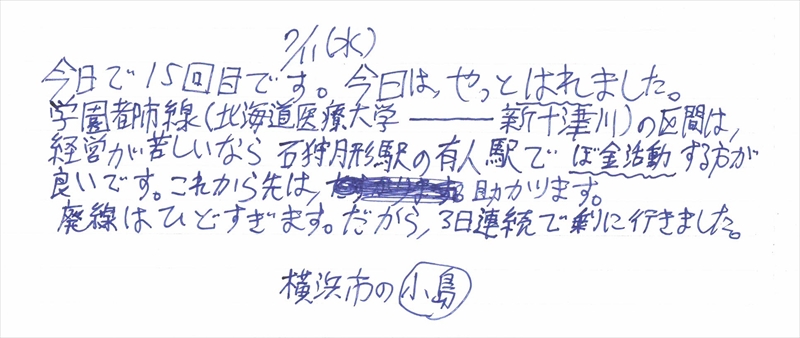 7/11(水)
今日で15回目です。今日は、やっとはれました。
学園都市線(北海道医療大学――新十津川)の区間は、
経営が苦しいなら石狩月形駅の有人駅でぼ金活動する方が
良いです。これから先は、助かります。
廃線はひどすぎます。だから、3日連続で乗りに行きました。
横浜市の小島